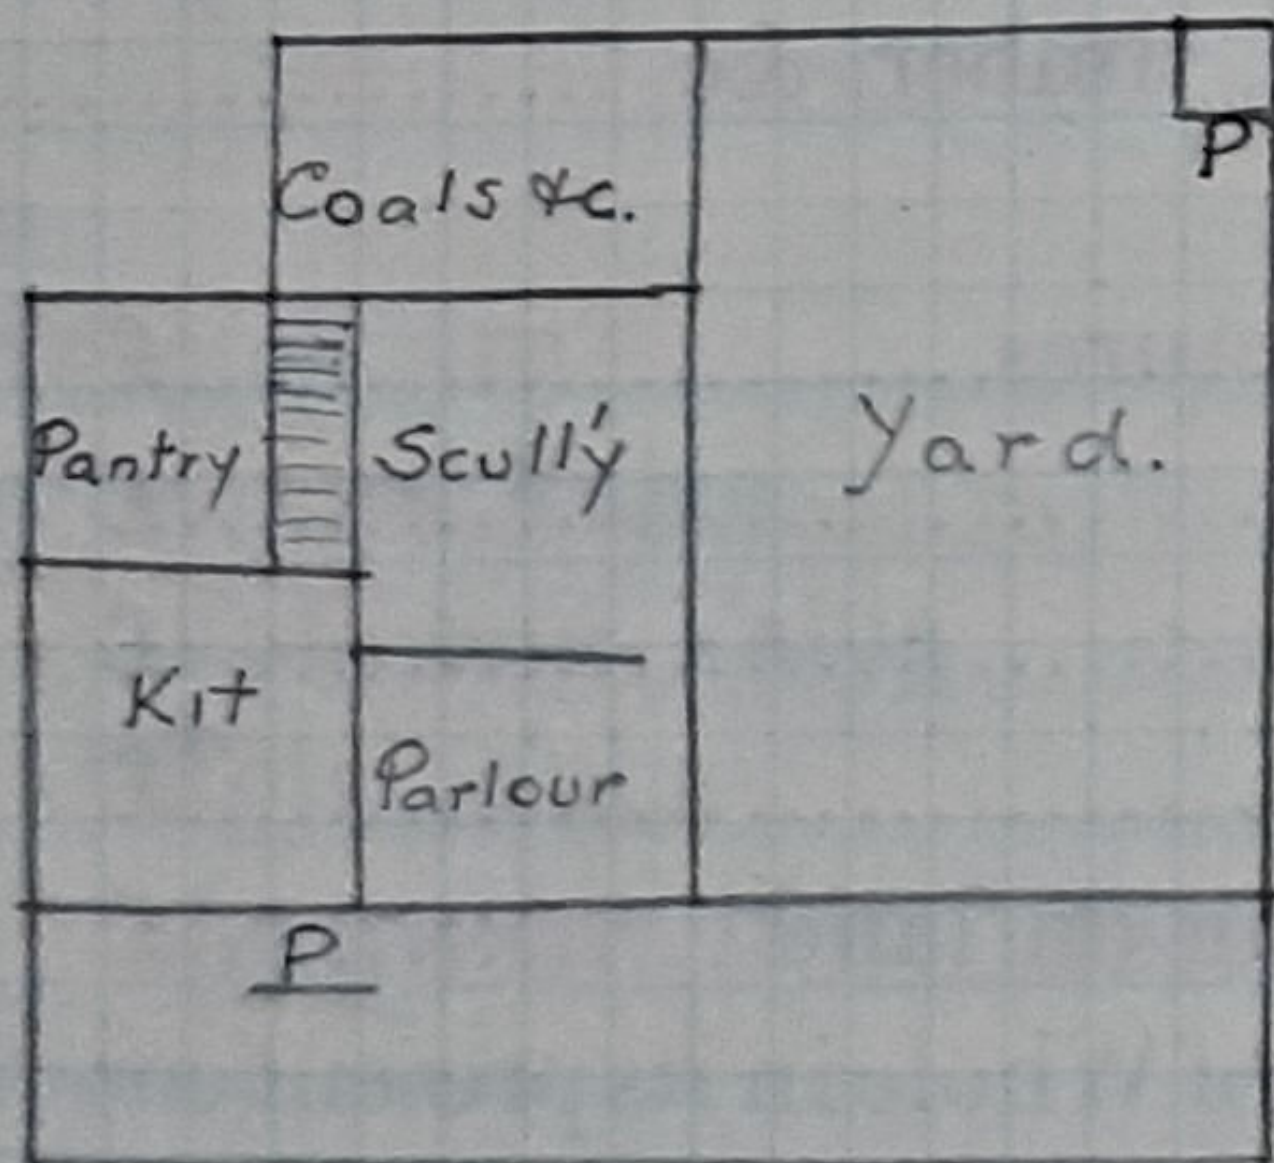 P
Coals &c.
Pantry
Scull'y
Yard.
Kit
Parlour
P